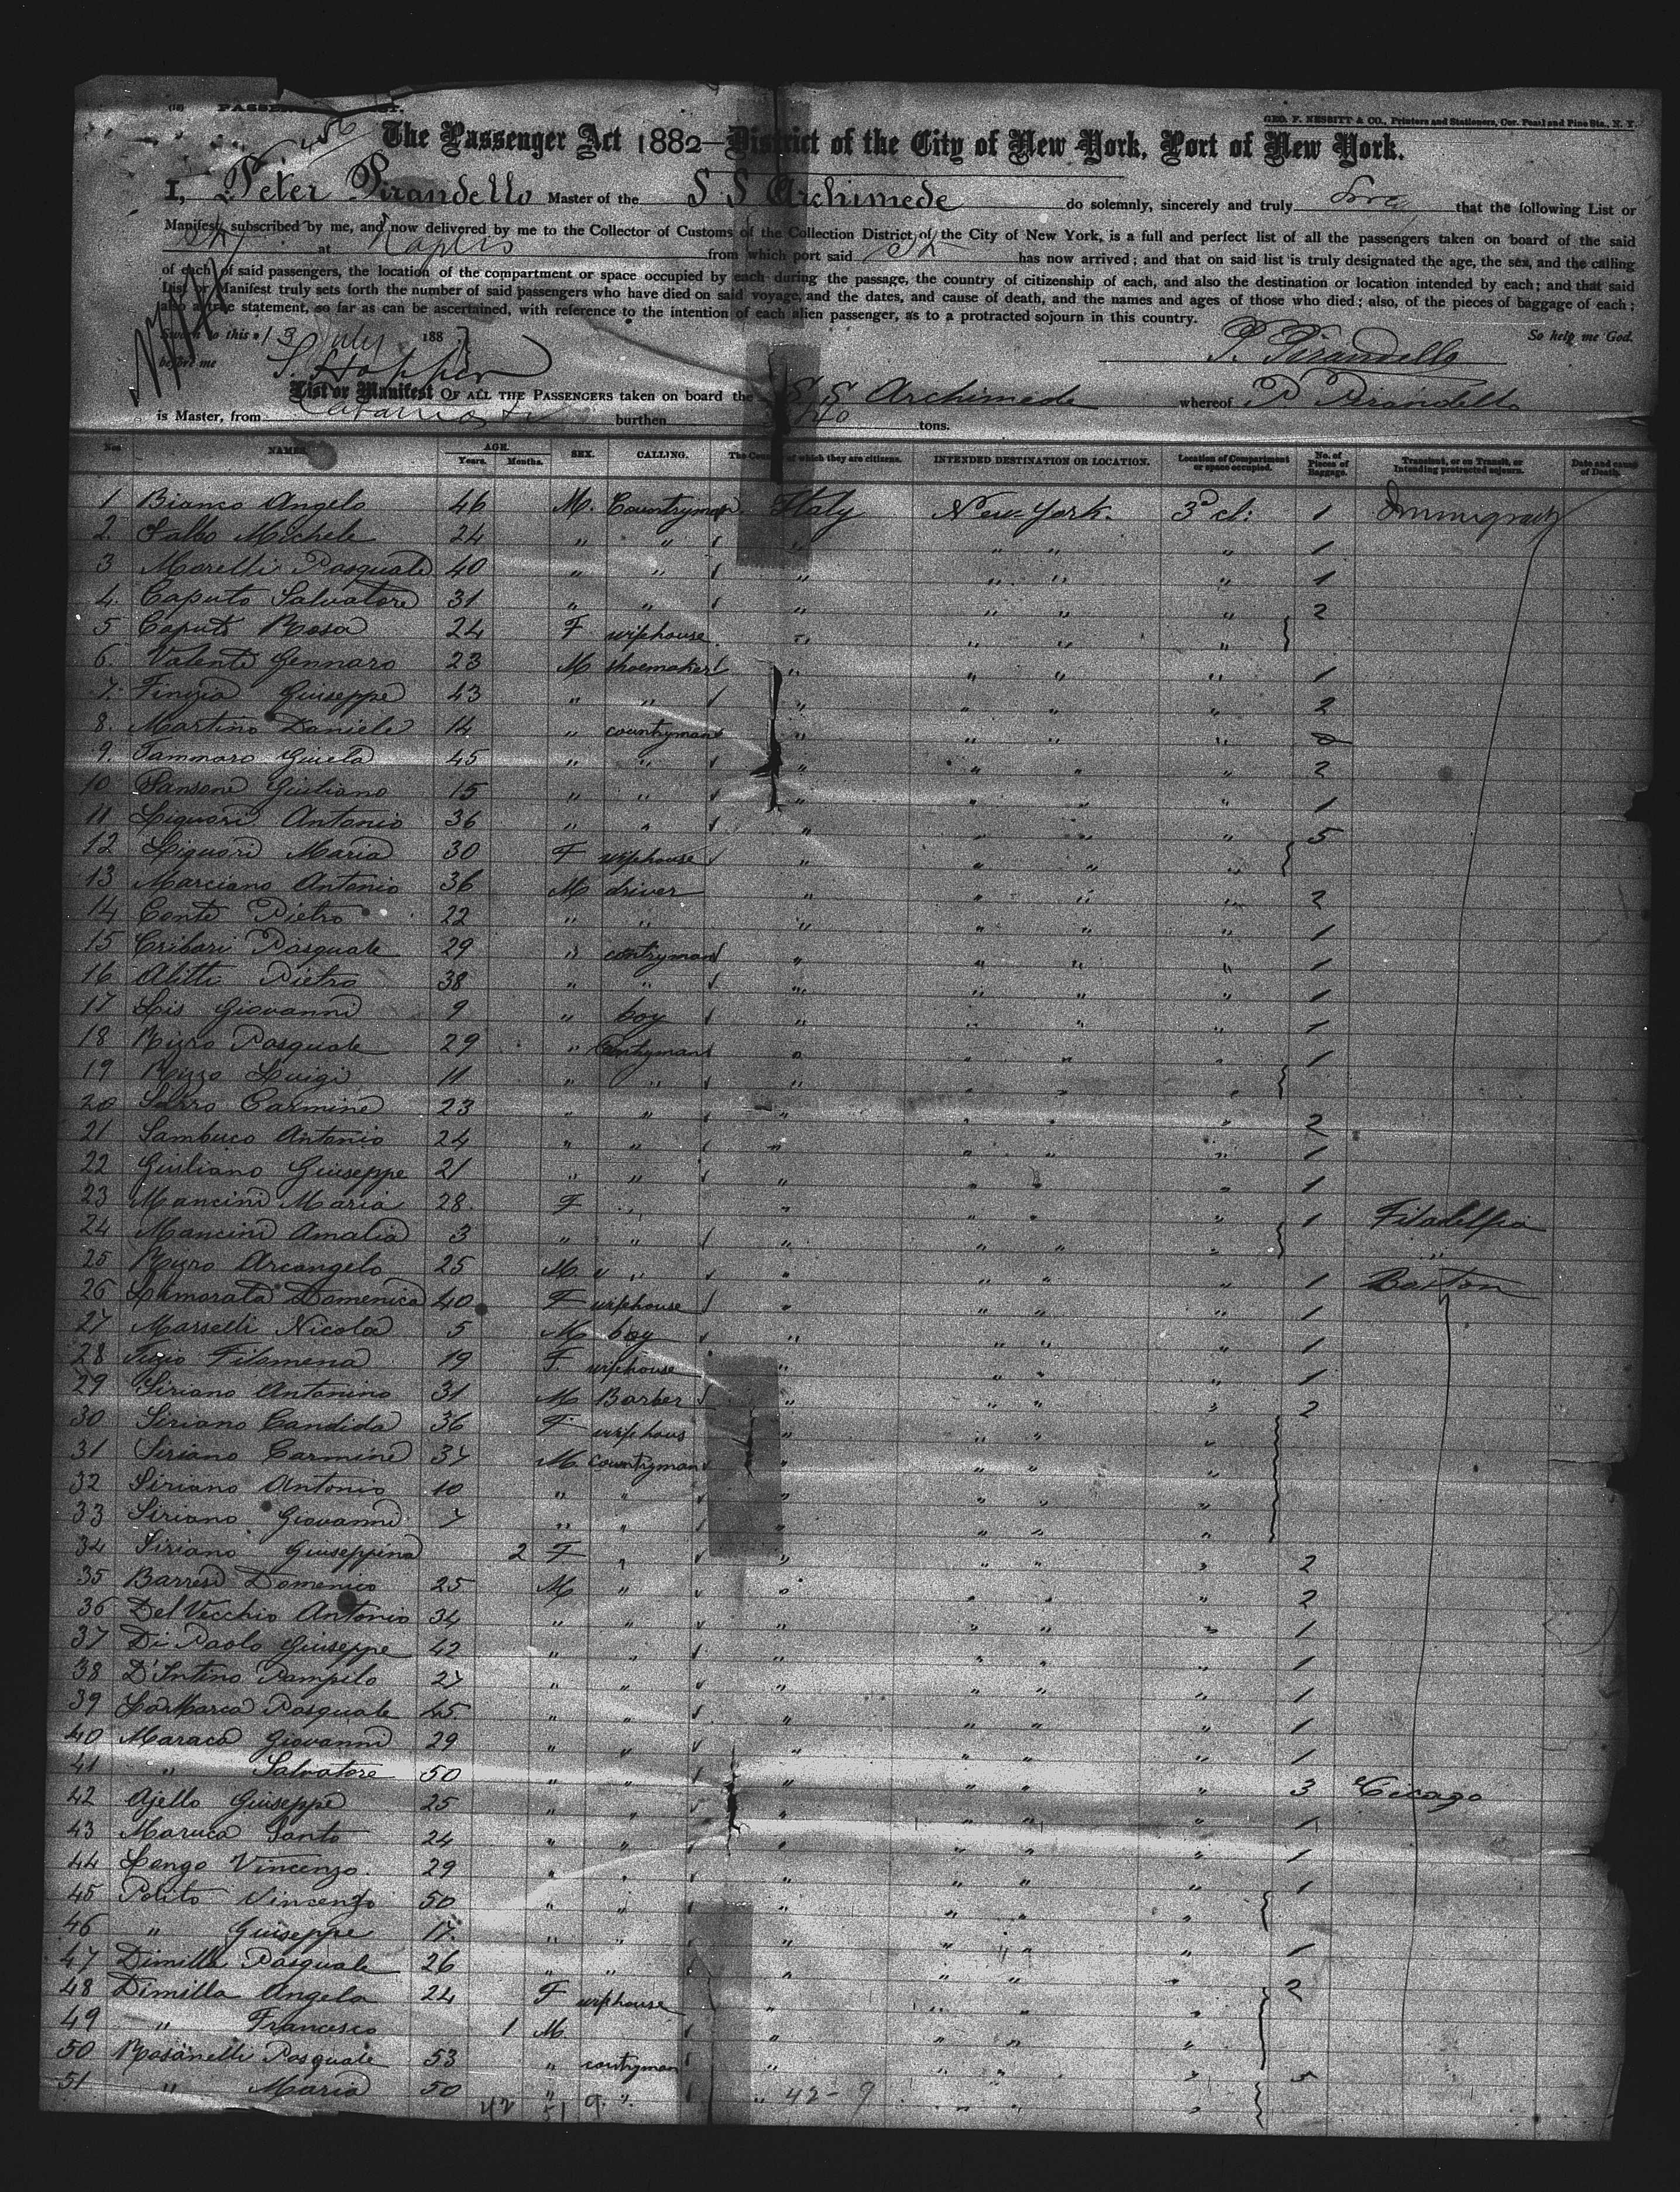 GEO. F. NESBITT & CO., Printers and Stationers, Cor. Pearl and Pine Sts., N. Y.
The Passenger Act 1882—District of the City of New York, Port of New York.
I, Peter Pirandello Master of the S S Archimede do solemnly, sincerely and truly that the following List or
Manifest, subscribed by me, and now delivered by me to the Collector of Customs of the Collection District of the City of New York, is a full and perfect list of all the passengers taken on board of the said
at Naples from which port said has now arrived; and that on said list is truly designated the age, the sex, and the calling
of each of said passengers, the location of the compartment or space occupied by each during the passage, the country of citizenship of each, and also the destination or location intended by each; and that said
List or Manifest truly sets forth the number of said passengers who have died on said voyage, and the dates, and cause of death, and the names and ages of those who died; also, of the pieces of baggage of each;
also a true statement, so far as can be ascertained, with reference to the intention of each alien passenger, as to a protracted sojourn in this country. So help me God.
Sworn to this 13 July 1887 P. Pirandello
before me
List or Manifest OF ALL THE PASSENGERS taken on board the S S Archimede whereof P. Pirandello
is Master, from burthen tons.
Nos NAMES AGE. Years. Months. SEX. CALLING. The Country of which they are citizens. INTENDED DESTINATION OR LOCATION. Location of Compartment or space occupied. No. of Pieces of Baggage. Transient, or on Transit, or Intending protracted sojourn. Date and cause of Death.
1 Bianco Angelo 46 M. Countryman Italy New York. 3d cl: 1 Immigrants
2 Falbo Michele 24 " " " " " " 1
3 Morelli Pasquale 40 " " " " " " 1
4 Caputo Salvatore 31 " " " " " " 2
5 Caputo Rosa 24 F wifehouse " " " "
6 Valente Gennaro 23 M shoemaker " " " " 1
7 Finizia Guiseppe 43 " " " " " " 2
8 Martino Daniele 14 " countryman " " " "
9 Tammaro Guieta 45 " " " " " " 2
10 Sansone Giuliano 15 " " " " " " 1
11 Liguori Antonio 36 " " " " " " 5
12 Liguori Maria 30 F wifehouse " " " "
13 Marciano Antonio 36 M driver " " " " 2
14 Conte Pietro 22 " " " " " " 1
15 Cribari Pasquale 29 " contryman " " " " 1
16 Alitti Pietro 38 " " " " " " 1
17 Lis Giovanni 9 " boy " " " " 1
18 Rizzo Pasquale 29 " Contryman " " " " 1
19 Rizzo Luigi 11 " " " " " "
20 Sarro Carmine 23 " " " " " " 2
21 Sambuco Antonio 24 " " " " " " 1
22 Giuliano Giuseppe 21 " " " " " " 1
23 Mancini Maria 28 F " " " " " 1 Filadelfia
24 Mancini Amalia 3 " " " " " " "
25 Rizzo Arcangelo 25 M " " " " " 1 Boxton
26 Lamorata Domenica 40 F wifehouse " " " " 1
27 Marselli Nicola 5 M boy " " " " 1
28 Filomena 19 F. wifehouse " " " " 1
29 Siriano Antonino 31 M Barber " " " " 2
30 Siriano Candida 36 F wifehous " " " "
31 Siriano Carmine 37 M countryman " " " "
32 Siriano Antonio 10 " " " " " "
33 Siriano Giovanni 7 " " " " " "
34 Siriano Giuseppina 2 F " " " " " 2
35 Barresi Domenico 25 M " " " " " 2
36 Del Vecchio Antonio 34 " " " " " " 1
37 Di Paolo Giuseppe 42 " " " " " " 1
38 D'Intino Pampilo 27 " " " " " " 1
39 La Marca Pasquale 45 " " " " " " 1
40 Maraca Giovanni 29 " " " " " " 1
41 " Salvatore 50 " " " " " " 3 Cicago
42 Ajello Giuseppe 25 " " " " " " 1
43 Maruca Santo 24 " " " " " " 1
44 Longo Vincenzo 29 " " " " " " 1
45 Polito Vincenzo 50 " " " " " "
46 " Guiseppe 17 " " " " " " 1
47 Dimilla Pasquale 26 " " " " " " 2
48 Dimilla Angela 24 F wifehouse " " " "
49 " Francesco 1 M " " " "
50 Rosanelli Pasquale 53 " contryman " " " "
51 " Maria 50 " " " " " "
42 51 9 42-9